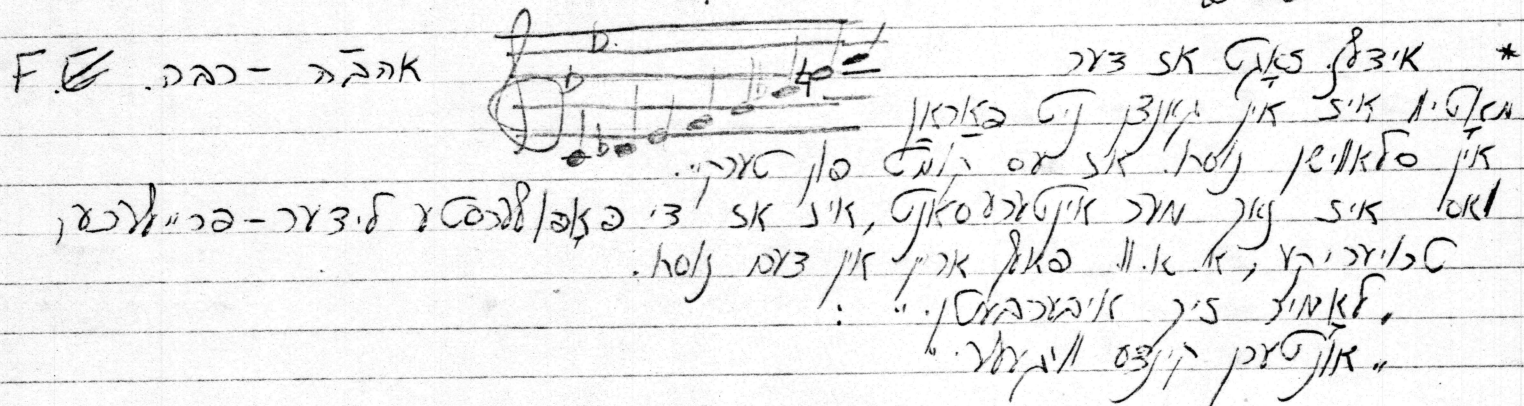 * אידעלע זאָגט אז דער אהבֿה - רבה. F.
מאָטיוו איז אין גאנצן ניט פאַראַן
אין סלאווישן נוסח. אז עס קומט פון טערקיי.
וואס איז נאך מער אינטערעסאנט, איז אז די פּאָפּולערסטע לידער - פרײלעכע,
טרויעריקע, א. א. וו. פאלן ארײַן אין דעם נוסח.
„לאָמיר זיך איבערבעטן." :
„אונטערן קינדס וויגעלע."